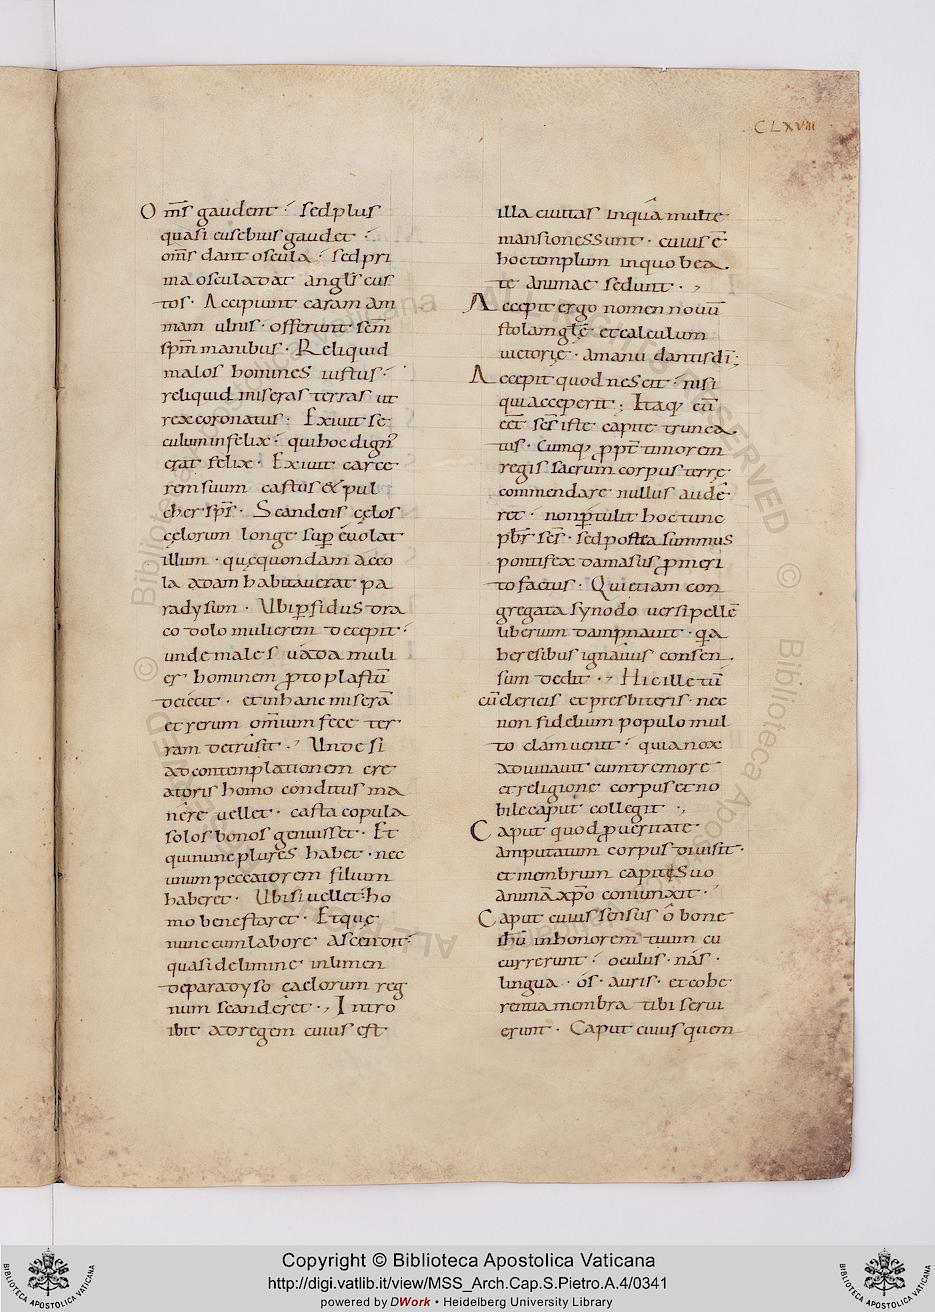 CLXVIII
Om̄s gaudent · sed plus
quasi eusebius gaudet ·
om̄s dant oscula · sed pri
ma osculadat angl̄s cus
tos · Accipiunt caram ani
mam ulnis · offerunt sc̄m
sp̄m manibus · Reliquid
malos homines iustus ·
reliquid miseras terras ut
rex coronatus · Exiuit se
culum infelix · qui hoc dign̄
erat felix · Exiuit carce
rem suum castus & pul
cher sp̄s · Scandens cęlos
cęlorum longe sup̄ euolat
illum · quę quondam acco
la adam habitauerat pa
radysum · Ubi p̄fidus dra
co dolo mulierem decepit ·
unde malesuada muli
er hominem p̄toplastū
deiecit · et in hanc miserā
et rerum om̄ium fece ter
ram detrusit · Unde si
ad contemplationem cre
atoris homo conditus ma
nere uellet · casta copula
solos bonos genuisset · Et
qui nunc plures habet · nec
unum peccatorem filium
haberet · Ubi si uellet · ho
mo bene staret · Et que
nunc cum labore ascendit ·
quasi de limine in limen
de paradyso caelorum reg
num scanderet · Intro
ibit ad regem cuius est
illa ciuitas in qua multe
mansiones sunt · cuius ē
hoc templum in quo bea
te animae sedunt ·
Accepit ergo nomen nouū
stolam gl̄ę et calculum
uictorię · amanu dantis dī ;
Accepit quod nescit · nisi
qui acceperit ; Itaq; cū
eēt sc̄s iste capite trunca
tus · Cumq; ppt̄ timorem
regis sacrum corpus terrę
commendare nullus aude
ret · non p̄tulit hoc tunc
pb̄r sc̄s · sed postea summus
pontifex damasus p̄ meri
to factus · Qui etiam con
gregata synodo uersipellē
liberum dampnauit · q̄a
heresibus ignauus consen
sum dedit · Hic ille tū
cū clericis et presbiteris · nec
non fidelium populo mul
to clam uenit · quia nox
adiuuauit cum tremore
et religione corpus et no
bile caput collegit ·
Caput quod p̄ ueritate
amputatum corpus diuisit ·
et membrum capiti suo
animā xp̄o coniunxit ·
Caput cuius sensus o bone
ihū in honorem tuum cu
currerunt · oculus · nas ·
lingua · os · auris · et cohe
rentia membra tibi serui
erunt · Caput cuius quem
Copyright © Biblioteca Apostolica Vaticana
http://digi.vatlib.it/view/MSS_Arch.Cap.S.Pietro.A.4/0341
powered by DWork • Heidelberg University Library